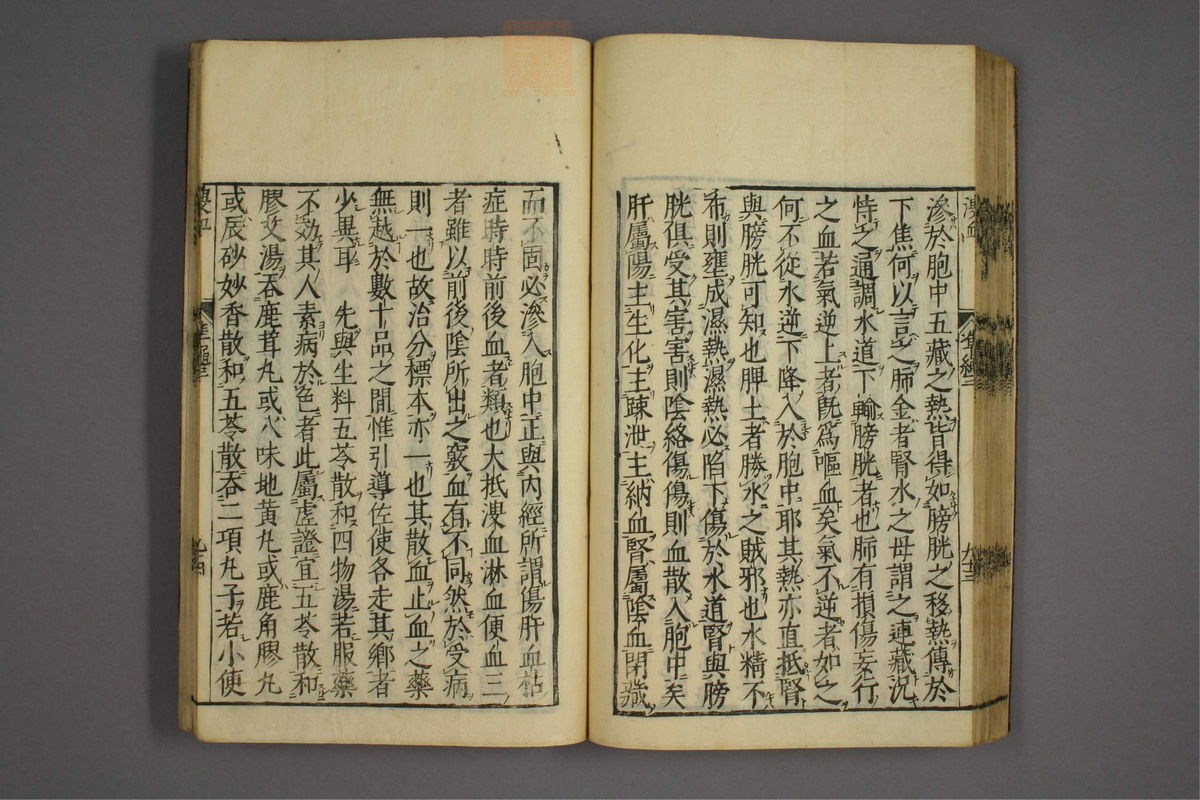 滲於胞中五藏之熱皆得如膀胱之移熱傳於
下焦何以言之肺金者腎水之母謂之連藏況
恃之通調水道下輸膀胱者也肺有損傷妄行
之血若氣逆上者旣爲嘔血矣氣不逆者如之
何不從水逆下降入於胞中耶其熱亦直抵腎
與膀胱可知也脾土者勝水之賊邪也水精不
布則壅成濕熱濕熱必陷下傷於水道腎與膀
胱俱受其害害則陰絡傷傷則血散入胞中矣
肝屬陽主生化主踈泄主納血腎屬陰血閉藏
而不固必滲入胞中正與内經所謂傷肝血枯
症時時前後血者類也大抵溲血淋血便血三
者雖以前後陰所出之竅血有不同然於受病
則一也故治分標本亦一也其散血止血之藥
無越於數十品之間惟引導佐使各走其鄉者
少異耳　先與生料五苓散和四物湯若服藥
不効其人素病於色者此屬虛證宜五苓散和
膠艾湯吞鹿茸丸或八味地黄丸或鹿角膠丸
或辰砂妙香散和五苓散吞二項丸子若小便